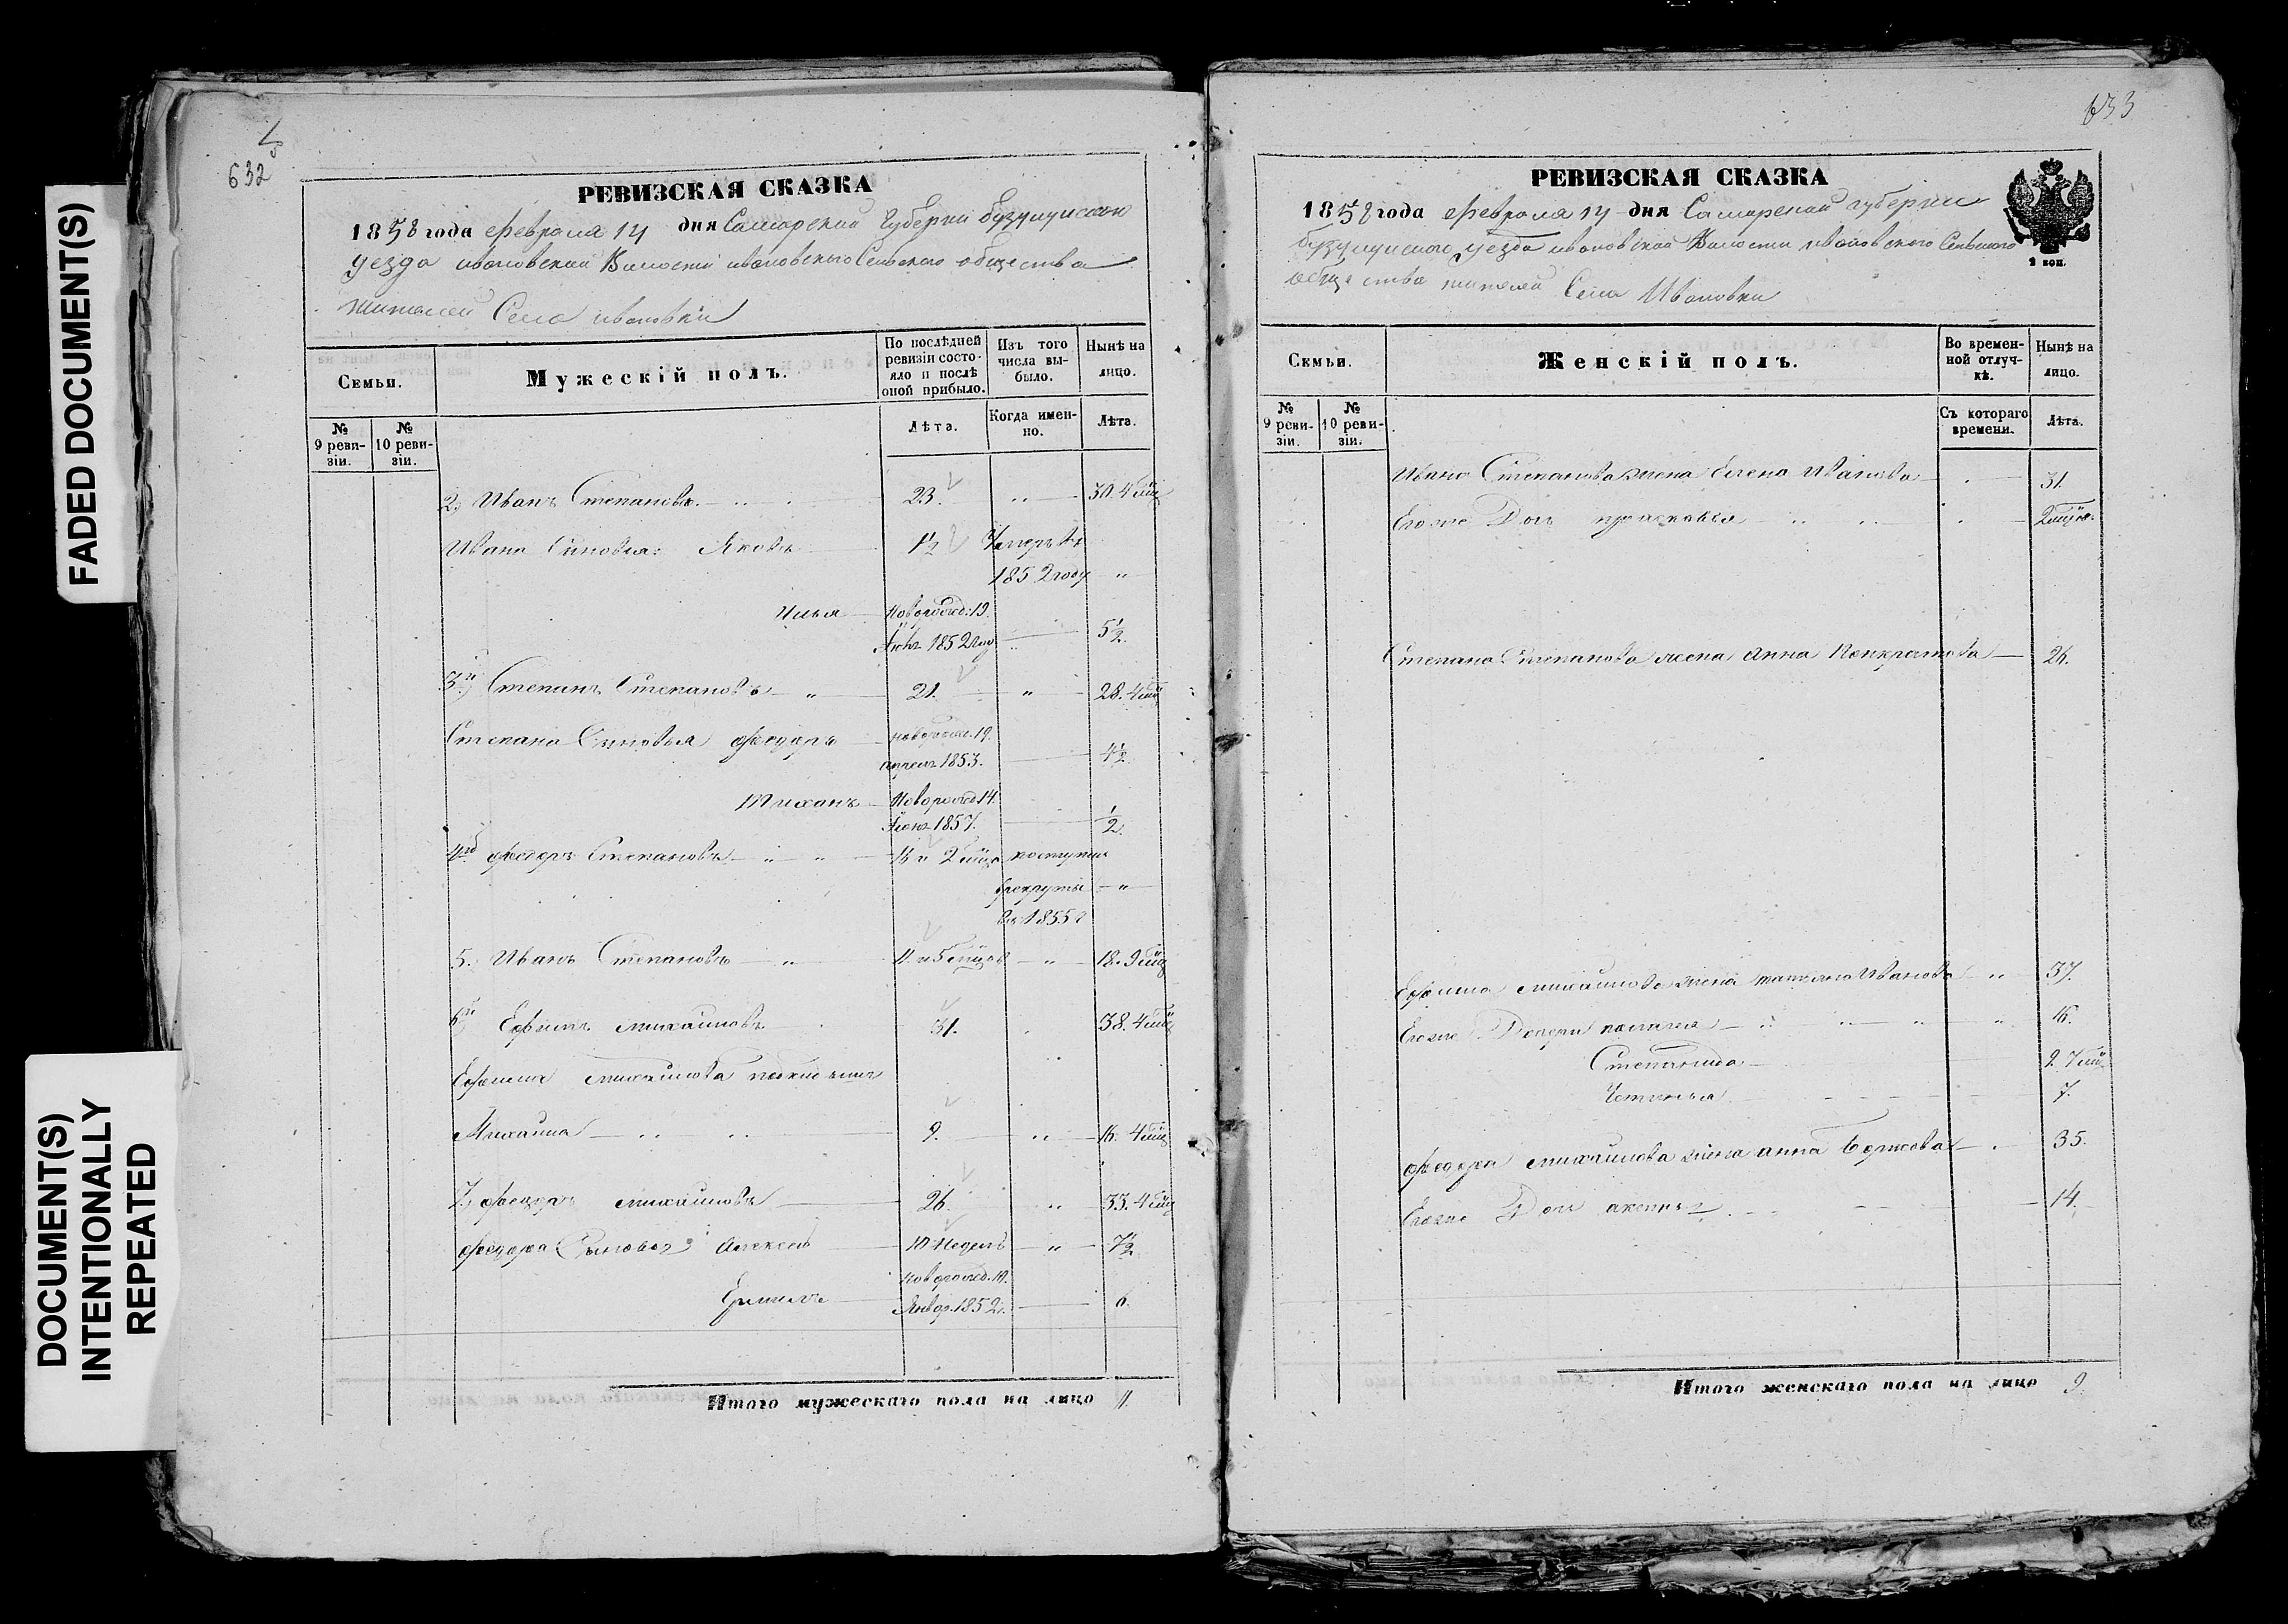 FADED DOCUMENT(S)
DOCUMENT(S)
INTENTIONALLY
REPEATED
632
РЕВИЗСКАЯ СКАЗКА
1858 года февраля 14 дня Самарской Губернии бузулукского
уезда ивановской Волости ивановского Сельского общества
жителей Села ивановки
Семьи.
Мужескій полъ.
По послѣдней
ревизіи состо-
яло и послѣ
оной прибыло.
Изъ того
числа вы-
было.
Нынѣ на
лицо.
№
9 реви-
зіи.
№
10 реви-
зіи.
Лѣта.
Когда имен-
но.
Лѣта.
2, Иванъ Степановъ 23. 30. 4 мѣц
Ивана Синовья: Яковъ 1½ Умеръ въ
1852 году „
Илья Новорожд: 19.
1852 году 5½
3й Степанъ Степановъ „ 21. „ 28. 4 мѣц
Степана Синовья федоръ новорожд. 19.
апреля 1853. 4½
Новорожд 14.
1857. ½
4й федоръ Степановъ 2 мѣца поступил
врекруты „
въ 1855 г
5. Иванъ Степановъ „ 11. и 5 мѣцов „ 18. 9 мѣц
6й Ефимъ михайловъ 31. 38. 4 мѣц
Ефима михайлова
Михайла 9. „ 16. 4 мѣц
7, федоръ михайловъ 26. „ 33. 4 мѣц
федора Сыновья Алексей 10 Недель „ 7½
новорожд. 10.
Январ. 1852 г. 6.
Итого мужескаго пола на лицо 11
633
РЕВИЗСКАЯ СКАЗКА
1858 года февраля 14 дня Самарской губернии
бузулукского уезда ивановской Волости ивановского Сельского
общества жителей Села Ивановки
2 коп.
Семьи.
Женскій полъ.
Во времен-
ной отлуч-
кѣ.
Нынѣ на
лицо.
№
9 реви-
зіи.
№
10 реви-
зіи.
Съ котораго
времени.
Лѣта.
Ивана Степанова жена Елена Иванова 31.
Егоже Доч праскавья
Степана Степанова жена Анна Панкратова 26.
Ефима михайлова жена татьяна Иванова „ 37.
Егоже Дочери пелагея „ 16.
Степанида 2. 7 мѣц
7.
федора михайлова жена анна 35.
Егоже Доч 14.
Итого женскаго пола на лицо 9.